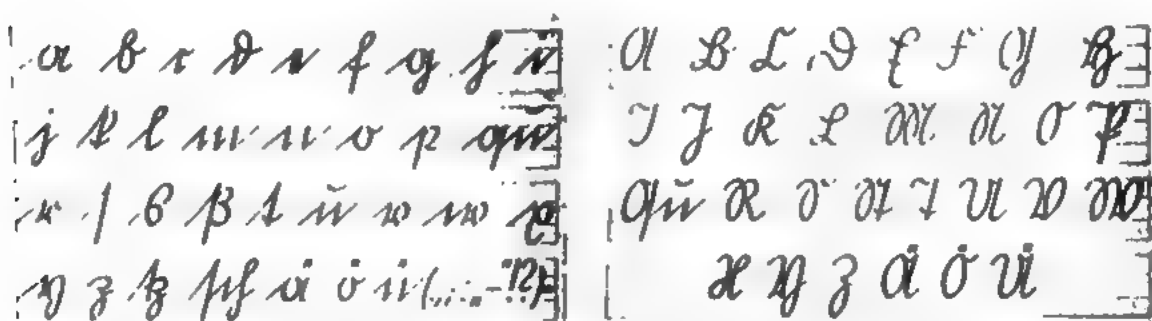 a b c d e f g h i
j k l m n o p qu
r ſ s ß t u v w x
y z tz ſch ä ö ü (.,:;„-"!?)
A B C D E F G H
I J K L M N O P
Qu R S St T U V W
X Y Z Ä Ö Ü